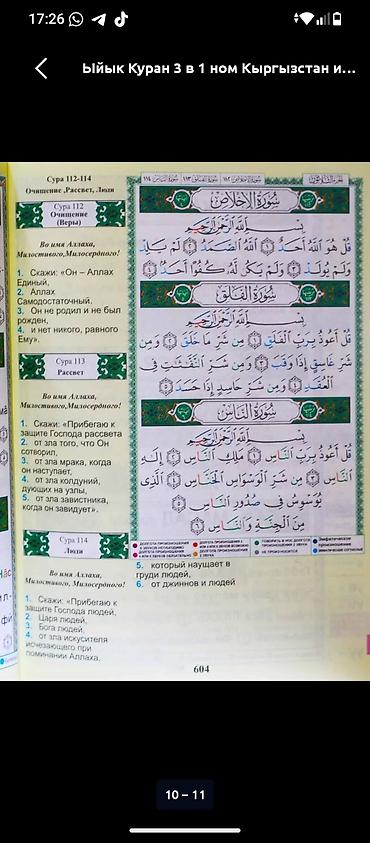 17:26
Ыйык Куран 3 в 1 ном Кыргызстан и...
Сура 112-114
Очищение ,Рассвет, Люди
Сура 112
Очищение
(Веры)
Во имя Аллаха,
Милостивого,Милосердного!
1. Скажи: «Он – Аллах
Единый,
2. Аллах
Самодостаточный.
3. Он не родил и не был
рожден,
4. и нет никого, равного
Ему».
Сура 113
Рассвет
Во имя Аллаха,
Милостивого,Милосердного!
1. Скажи: «Прибегаю к
защите Господа рассвета
2. от зла того, что Он
сотворил,
3. от зла мрака, когда
он наступает,
4. от зла колдуний,
дующих на узлы,
5. от зла завистника,
когда он завидует».
Сура 114
Люди
Во имя Аллаха,
Милостивого, Милосердного!
1. Скажи: «Прибегаю к
защите Господа людей,
2. Царя людей,
3. Бога людей,
4. от зла искусителя
исчезающего при
поминании Аллаха,
سُورَةُ الإِخْلَاصِ
بِسْمِ ٱللَّهِ ٱلرَّحْمَٰنِ ٱلرَّحِيمِ
قُلْ هُوَ ٱللَّهُ أَحَدٌ ١ ٱللَّهُ ٱلصَّمَدُ ٢ لَمْ يَلِدْ
وَلَمْ يُولَدْ ٣ وَلَمْ يَكُن لَّهُۥ كُفُوًا أَحَدٌۢ ٤
سُورَةُ الفَلَقِ
بِسْمِ ٱللَّهِ ٱلرَّحْمَٰنِ ٱلرَّحِيمِ
قُلْ أَعُوذُ بِرَبِّ ٱلْفَلَقِ ١ مِن شَرِّ مَا خَلَقَ ٢ وَمِن
شَرِّ غَاسِقٍ إِذَا وَقَبَ ٣ وَمِن شَرِّ ٱلنَّفَّٰثَٰتِ فِى
ٱلْعُقَدِ ٤ وَمِن شَرِّ حَاسِدٍ إِذَا حَسَدَ ٥
سُورَةُ النَّاسِ
بِسْمِ ٱللَّهِ ٱلرَّحْمَٰنِ ٱلرَّحِيمِ
قُلْ أَعُوذُ بِرَبِّ ٱلنَّاسِ ١ مَلِكِ ٱلنَّاسِ ٢ إِلَٰهِ
ٱلنَّاسِ ٣ مِن شَرِّ ٱلْوَسْوَاسِ ٱلْخَنَّاسِ ٤ ٱلَّذِى
يُوَسْوِسُ فِى صُدُورِ ٱلنَّاسِ ٥
مِنَ ٱلْجِنَّةِ وَٱلنَّاسِ ٦
5. который наущает в
груди людей,
6. от джиннов и людей
604
10 – 11